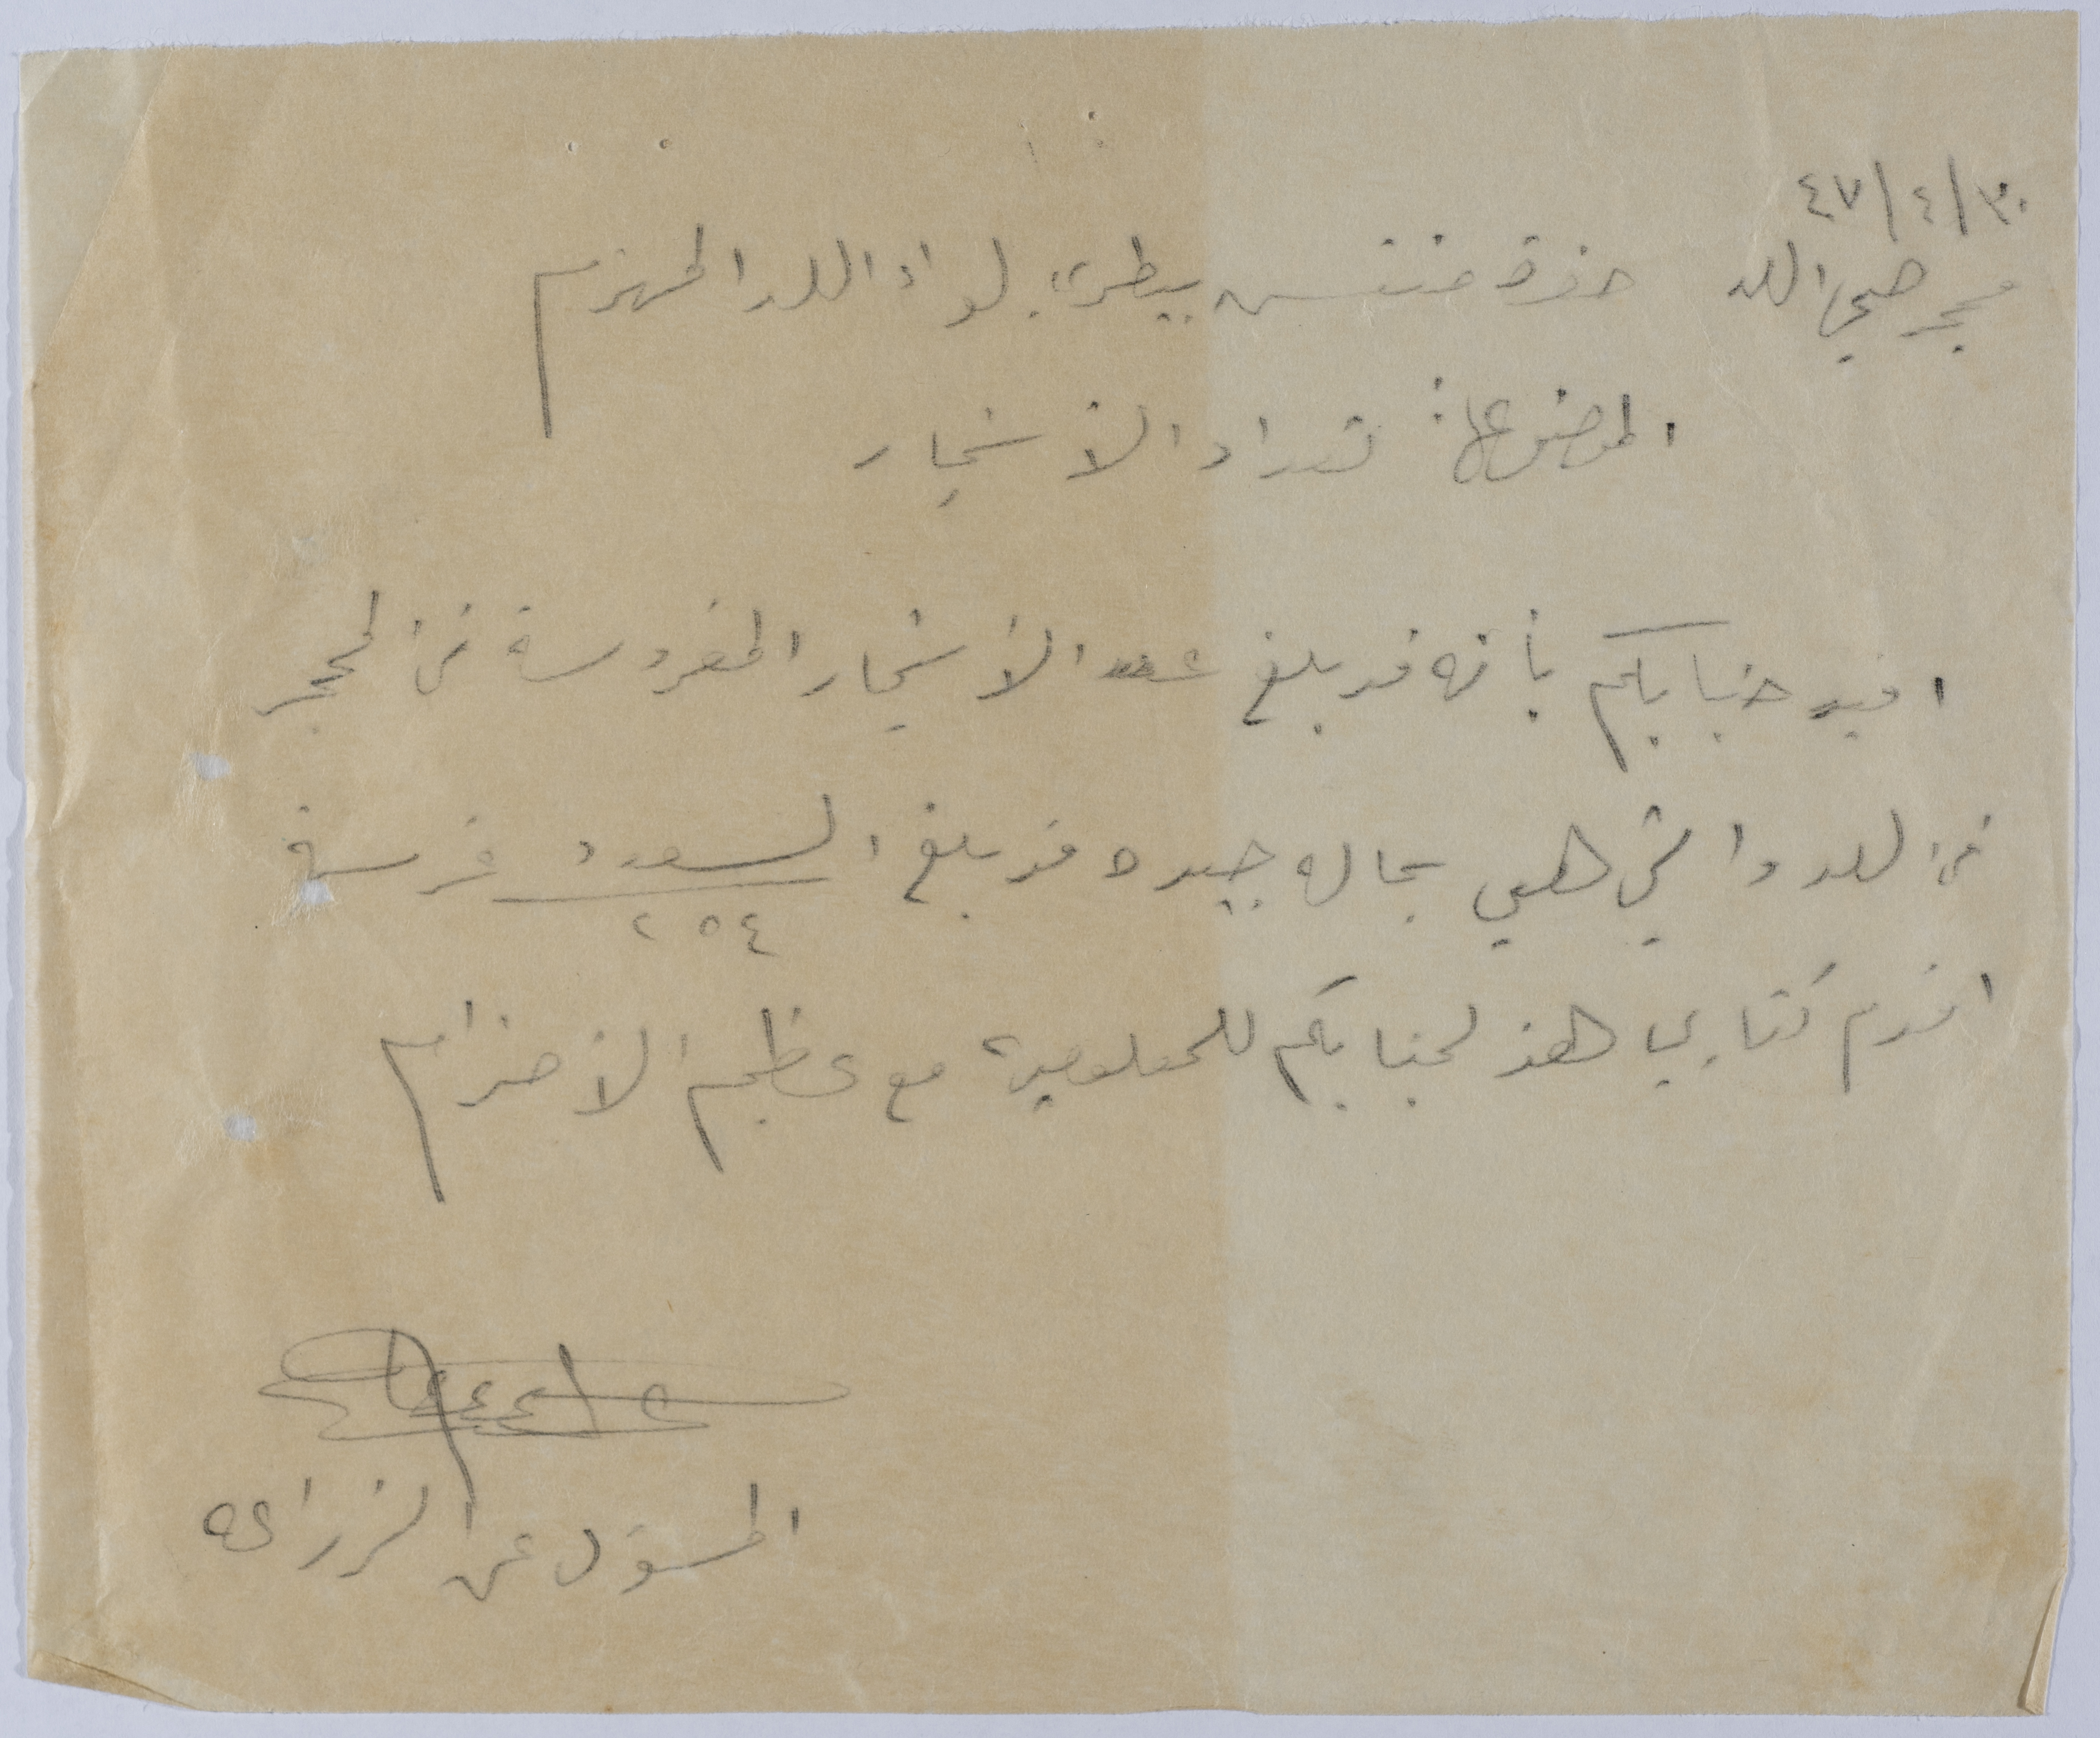 ٣٠/٤/٤٧
محجر صحي اللد حضرة مفتش بيطرية لواء اللد المحترم
الموضوع: تعداد الأشجار
افيد جنابكم بأنه قد بلغ عدد الأشجار المغروسة في المحجر
في اللد والتي هي بحاله جيده قد بلغ العدد غرسة
٢٥٤
اقدم كتابي هذ لجنابكم للمعلومية مع عظيم الأحترام
المسؤل عن الزراعه